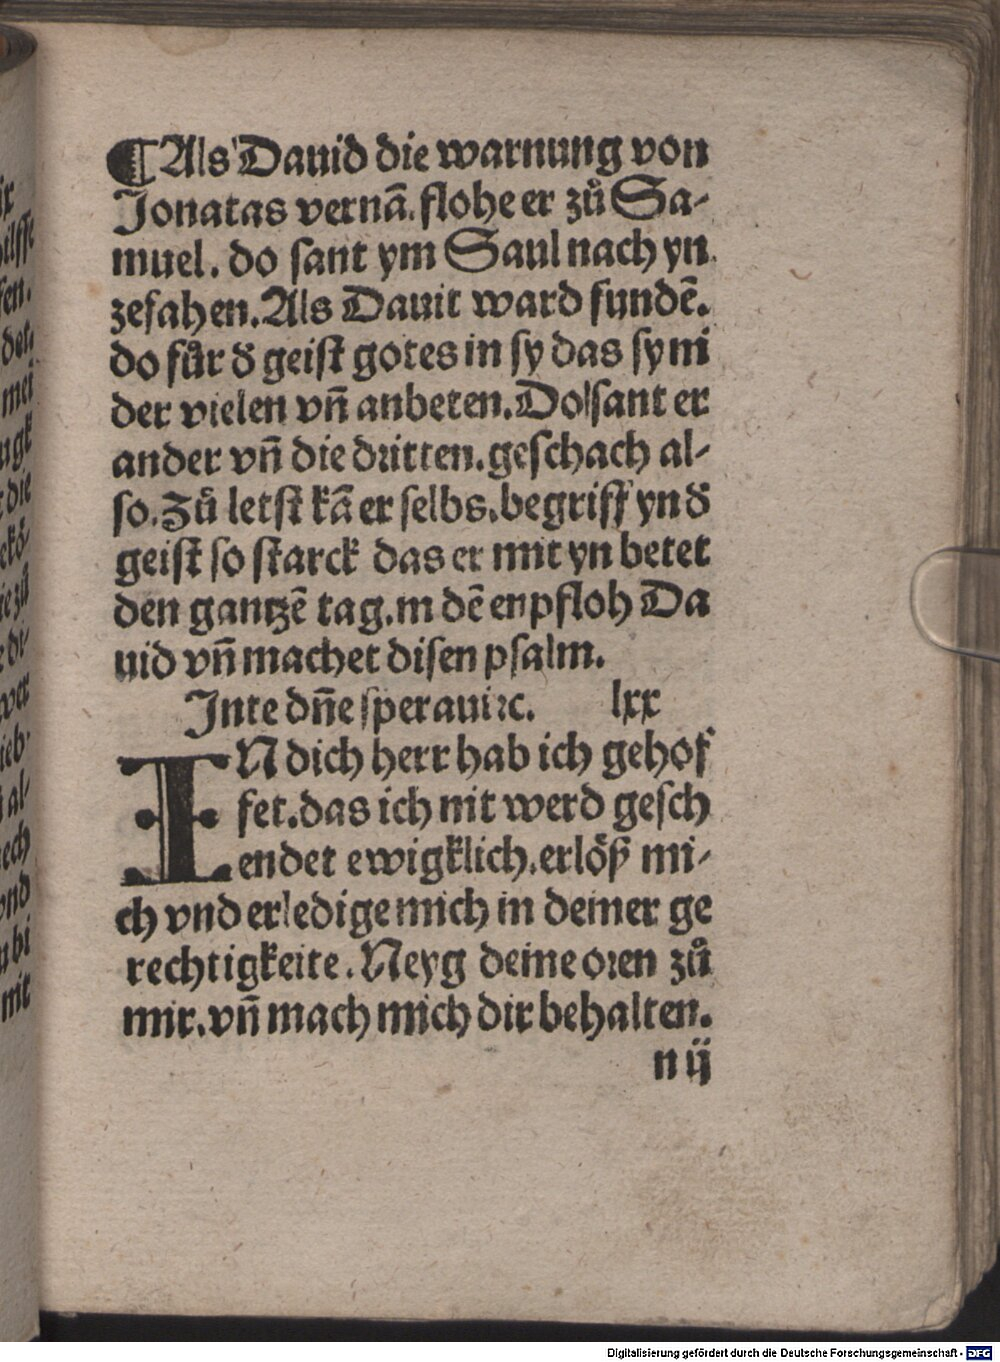 ¶Als Dauid die warnung von
Jonatas vernā. flohe er zů Sa-
muel. do sant ym Saul nach yn
zefahen. Als Dauit ward fundē.
do fůr d̕ geist gotes in sy das sy ni
der vielen vn̄ anbeten. Do sant er
ander vn̄ die dritten. geschach al-
so. Zů letst kā er selbs. begriff yn d̕
geist so starck das er mit yn betet
den gantzē tag. in dē enpfloh Da
uid vn̄ machet disen psalm.
Jn te dn̄e speraui ⁊c. lxx
IN dich herr hab ich gehof
fet. das ich nit werd gesch
endet ewigklich. erlöß mi-
ch vnd erledige mich in deiner ge
rechtigkeite. Neyg deine oren zů
mir. vn̄ mach mich dir behalten.
n ij
Digitalisierung gefördert durch die Deutsche Forschungsgemeinschaft - DFG